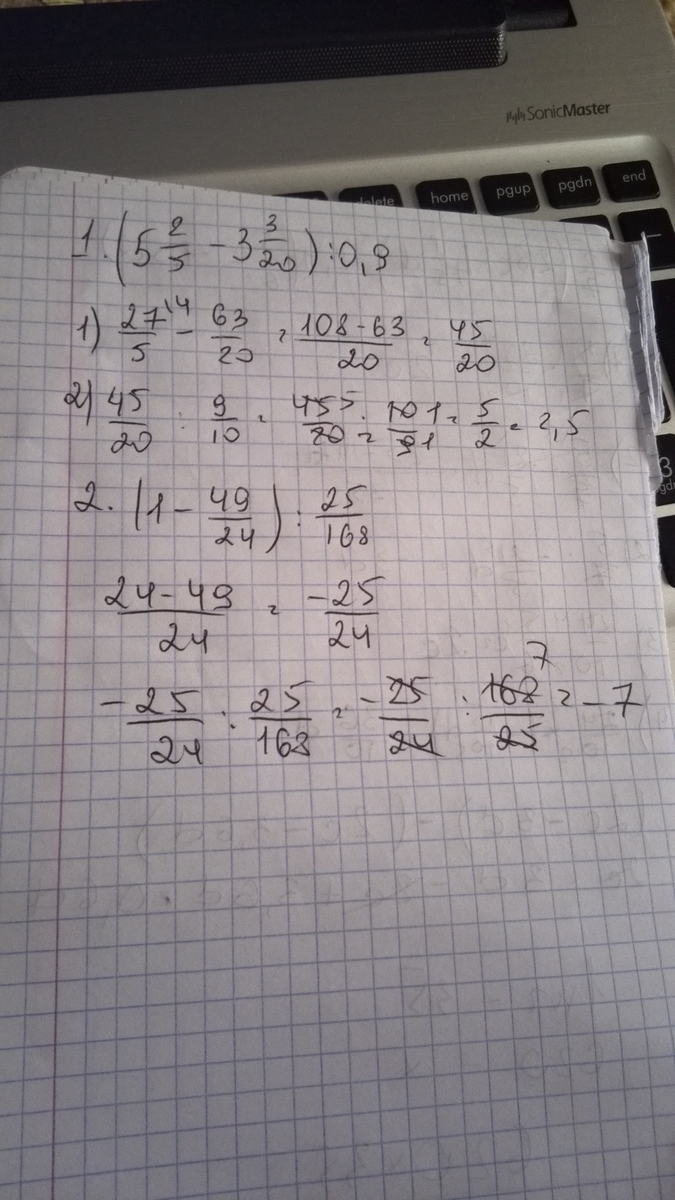 SonicMaster
delete home pgup pgdn end
1. (5 2/5 - 3 3/20) : 0,9
1) 27/5 \4 - 63/20 = (108-63)/20 = 45/20
2) 45/20 : 9/10 = 45 5/20 2 · 10 1/9 1 = 5/2 = 2,5
2. (1 - 49/24) : 25/168
(24-49)/24 = -25/24
-25/24 : 25/168 = -25/24 : 168 7/25 = -7